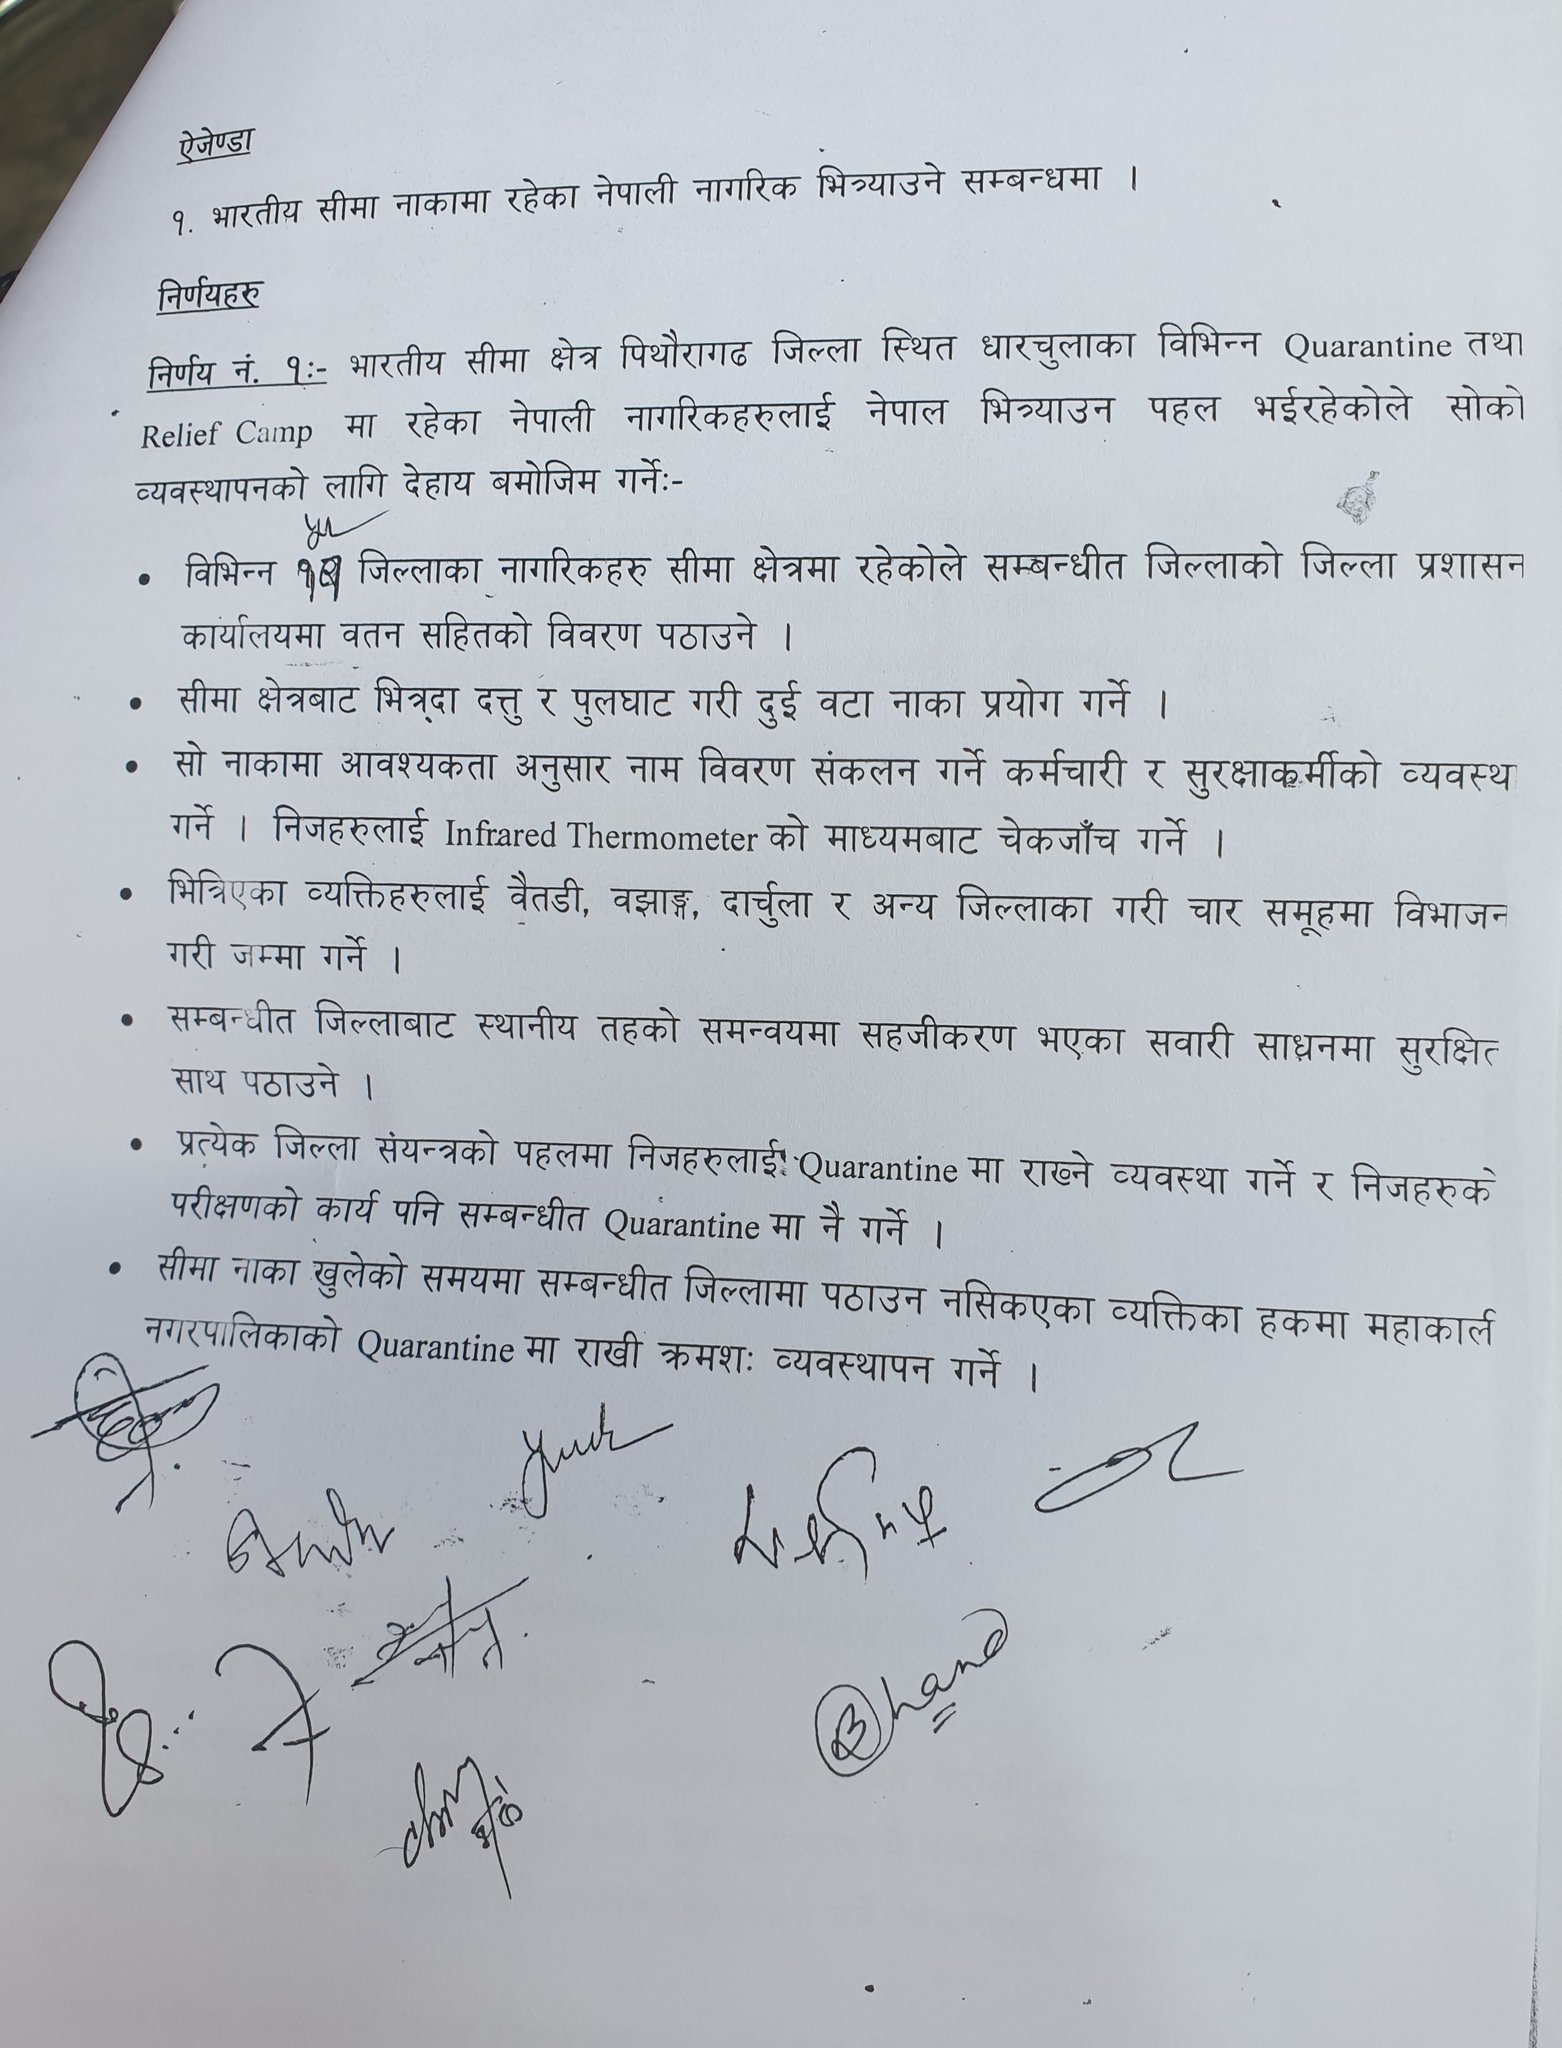 ऐजेण्डा
१. भारतीय सीमा नाकामा रहेका नेपाली नागरिक भित्र्याउने सम्बन्धमा ।
निर्णयहरु
निर्णय नं. १ः- भारतीय सीमा क्षेत्र पिथौरागढ जिल्ला स्थित धारचुलाका विभिन्न Quarantine तथा
Relief Camp मा रहेका नेपाली नागरिकहरुलाई नेपाल भित्र्याउन पहल भईरहेकोले सोको
व्यवस्थापनको लागि देहाय बमोजिम गर्नेः-
• विभिन्न जिल्लाका नागरिकहरु सीमा क्षेत्रमा रहेकोले सम्बन्धीत जिल्लाको जिल्ला प्रशासन
कार्यालयमा वतन सहितको विवरण पठाउने ।
• सीमा क्षेत्रबाट भित्र्दा दत्तु र पुलघाट गरी दुई वटा नाका प्रयोग गर्ने ।
• सो नाकामा आवश्यकता अनुसार नाम विवरण संकलन गर्ने कर्मचारी र सुरक्षाकर्मीको व्यवस्थ
गर्ने । निजहरुलाई Infrared Thermometer को माध्यमबाट चेकजाँच गर्ने ।
• भित्रिएका व्यक्तिहरुलाई वैतडी, वझाङ्ग, दार्चुला र अन्य जिल्लाका गरी चार समूहमा विभाजन
गरी जम्मा गर्ने ।
• सम्बन्धीत जिल्लाबाट स्थानीय तहको समन्वयमा सहजीकरण भएका सवारी साधनमा सुरक्षित
साथ पठाउने ।
• प्रत्येक जिल्ला संयन्त्रको पहलमा निजहरुलाई Quarantine मा राख्ने व्यवस्था गर्ने र निजहरुक
परीक्षणको कार्य पनि सम्बन्धीत Quarantine मा नै गर्ने ।
• सीमा नाका खुलेको समयमा सम्बन्धीत जिल्लामा पठाउन नसकिएका व्यक्तिका हकमा
नगरपालिकाको Quarantine मा राखी क्रमशः व्यवस्थापन गर्ने ।
Bhand